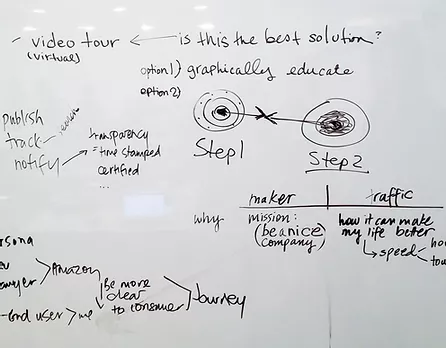 - video tour ← is this the best solution?
(virtual)
option1) graphically educate
option2)
publish
track
notify
transparency
=time stamped
certified
...
Step1
Step2
maker traffic
why mission: how it can make
(be a nice my life better
company)
speed
ersona
Amazon
be more
clear
to consumer
Journey
-end user > me